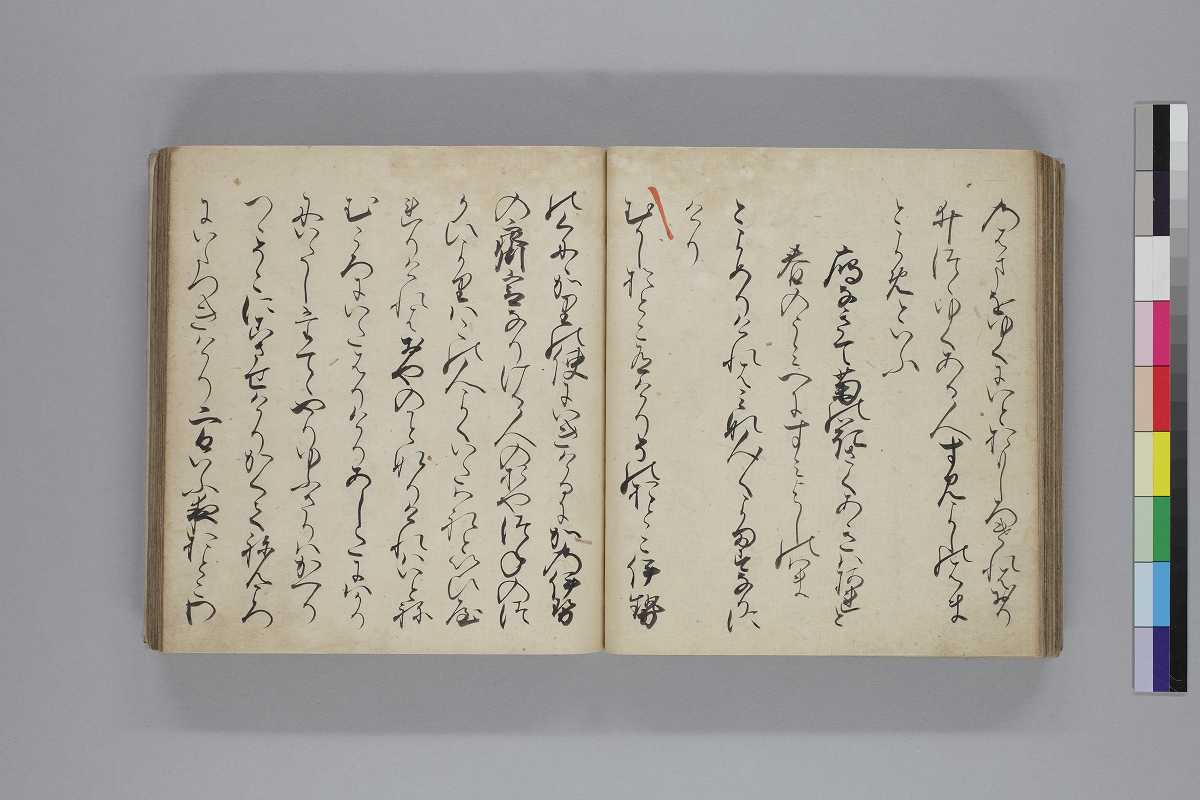 のはまをゆくにいとおもしろけれはおり
ゐつゝゆくある人すみよしのはま
とよめといふ
鴈なきて菊の花さくあきはあれと
春のうみへにすみよしのはま
とよめりけれはみな人〱よますなりに
けり
むかしおとこありけりそのおとこ伊勢
のくにゝかりの使にいきけるにかの伊勢
の斎宮なりける人のおやつねのつ
かひよりはこの人よくいたはれといひや
れりけれはおやのことなりけれはいとね
むころにいたはりけりあしたにはかり
にいたしたてゝやりゆふさりはかへり
つゝそこにこさせけりかくてねんころ
にいたつきけり二日といふ夜おとこわ